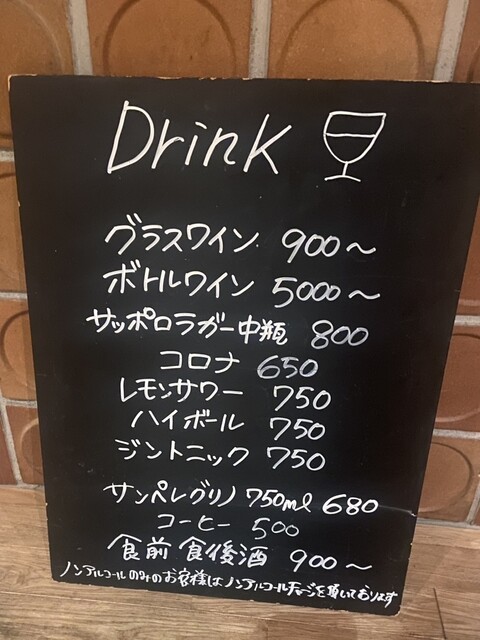 Drink
グラスワイン 900〜
ボトルワイン 5000〜
サッポロラガー中瓶 800
コロナ 650
レモンサワー 750
ハイボール 750
ジントニック 750
サンペレグリノ 750ml 680
コーヒー 500
食前食後酒 900〜
ノンアルコールのみのお客様はノンアルコールチャージを頂いております